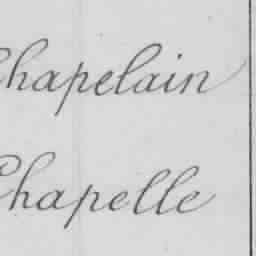 Chapelain
Chapelle